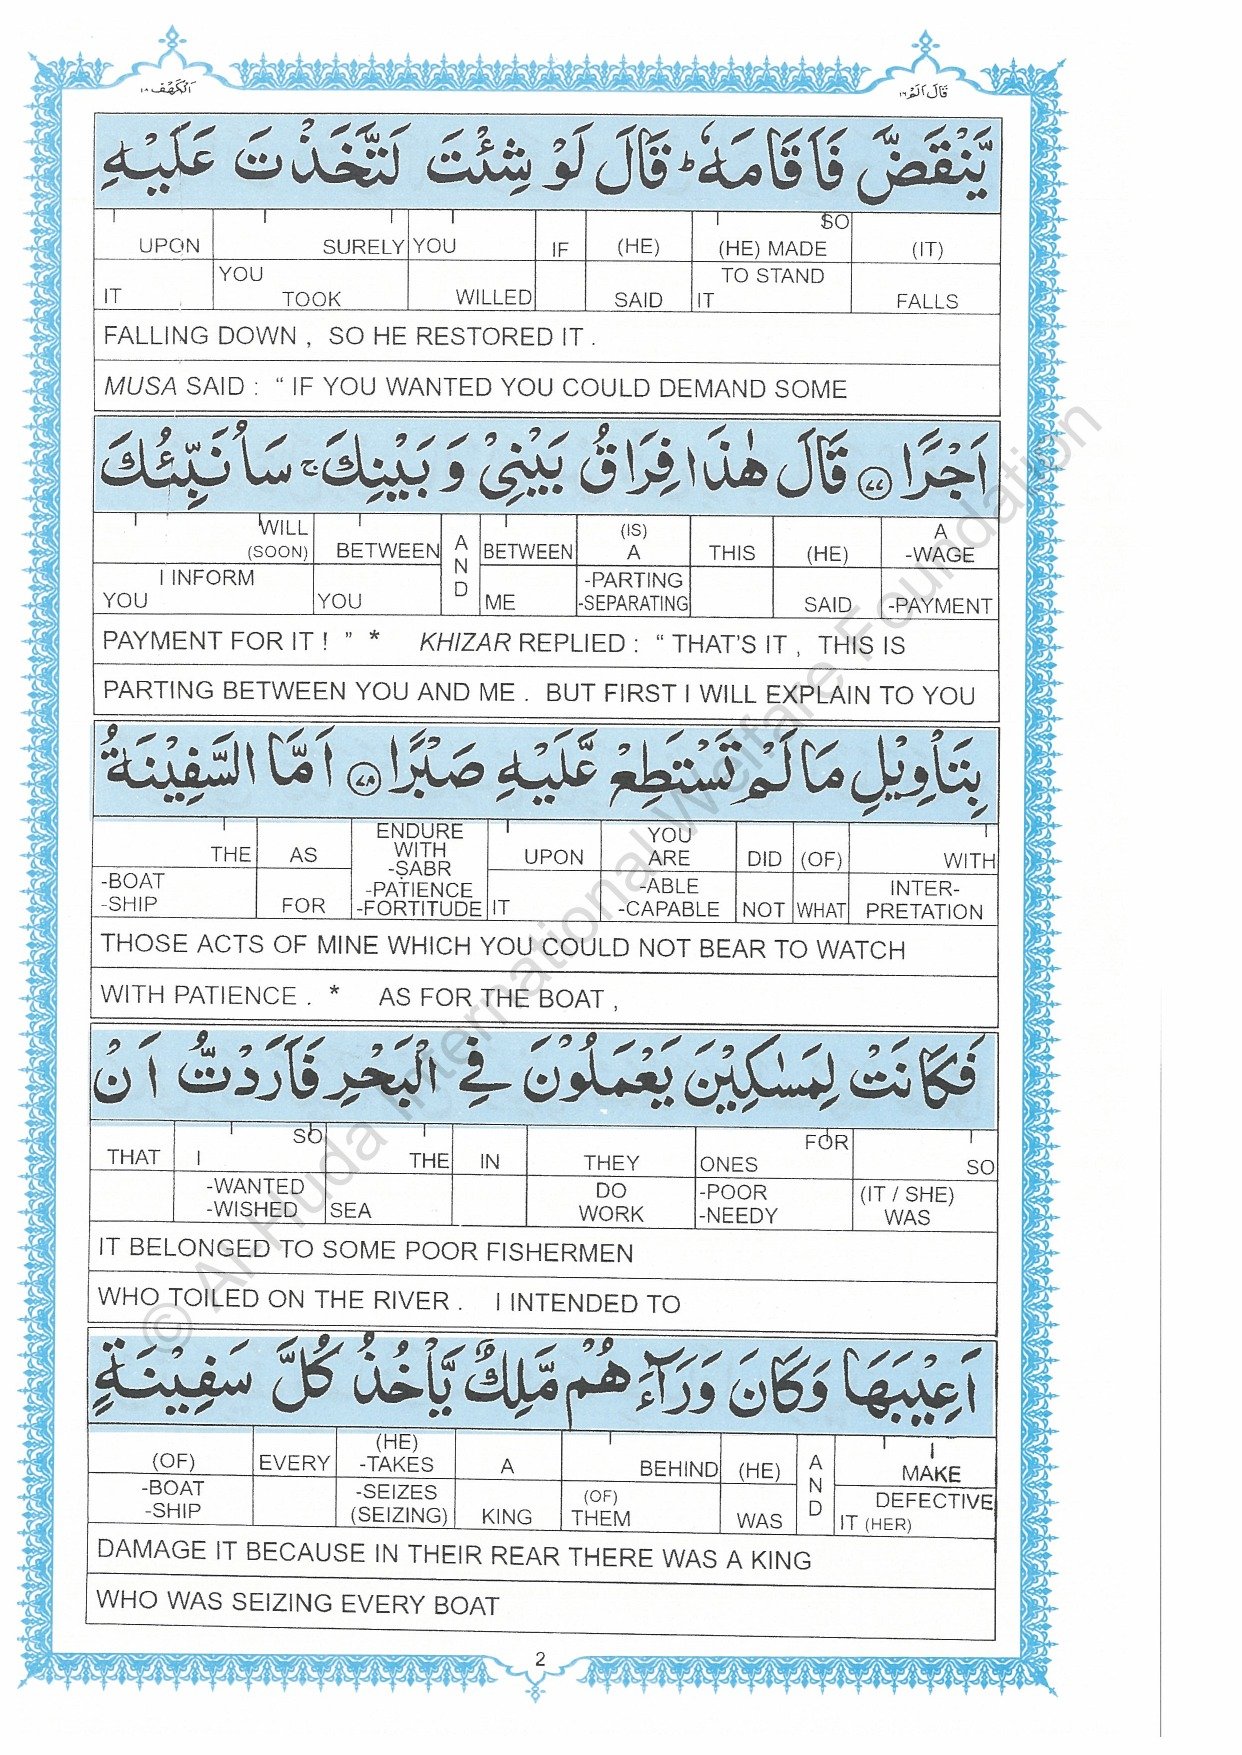 اَلْكَهْف ١٨
قَالَ اَلَمْ ١٦
يَّنْقَضَّ فَاَقَامَهٗ ؕ قَالَ لَوْ شِئْتَ لَتَّخَذْتَ عَلَيْهِ
UPON SURELY YOU IF (HE) SO (HE) MADE (IT)
IT YOU TOOK WILLED SAID TO STAND IT FALLS
FALLING DOWN , SO HE RESTORED IT .
MUSA SAID : “ IF YOU WANTED YOU COULD DEMAND SOME
اَجْرًا ﴿٧٧﴾ قَالَ هٰذَا فِرَاقُ بَيْنِيْ وَ بَيْنِكَ ۚ سَاُنَبِّئُكَ
WILL (SOON) BETWEEN AND BETWEEN (IS) A THIS (HE) A -WAGE
I INFORM YOU YOU ME -PARTING -SEPARATING SAID -PAYMENT
PAYMENT FOR IT ! ” * KHIZAR REPLIED : “ THAT’S IT , THIS IS
PARTING BETWEEN YOU AND ME . BUT FIRST I WILL EXPLAIN TO YOU
بِتَاْوِيْلِ مَا لَمْ تَسْتَطِعْ عَّلَيْهِ صَبْرًا ﴿٧٨﴾ اَمَّا السَّفِيْنَةُ
THE AS ENDURE WITH -SABR UPON YOU ARE DID (OF) WITH
-BOAT -SHIP FOR -PATIENCE -FORTITUDE IT -ABLE -CAPABLE NOT WHAT INTER-PRETATION
THOSE ACTS OF MINE WHICH YOU COULD NOT BEAR TO WATCH
WITH PATIENCE . * AS FOR THE BOAT ,
فَكَانَتْ لِمَسٰكِيْنَ يَعْمَلُوْنَ فِي الْبَحْرِ فَاَرَدْتُّ اَنْ
THAT SO I THE IN THEY FOR ONES SO
-WANTED -WISHED SEA DO WORK -POOR -NEEDY (IT / SHE) WAS
IT BELONGED TO SOME POOR FISHERMEN
WHO TOILED ON THE RIVER . I INTENDED TO
اَعِيْبَهَا وَكَانَ وَرَآءَ هُمْ مَّلِكٌ يَّاْخُذُ كُلَّ سَفِيْنَةٍ
(OF) EVERY (HE) -TAKES A BEHIND (HE) AND I MAKE
-BOAT -SHIP -SEIZES (SEIZING) KING (OF) THEM WAS DEFECTIVE IT (HER)
DAMAGE IT BECAUSE IN THEIR REAR THERE WAS A KING
WHO WAS SEIZING EVERY BOAT
2
© Al-Huda International Welfare Foundation